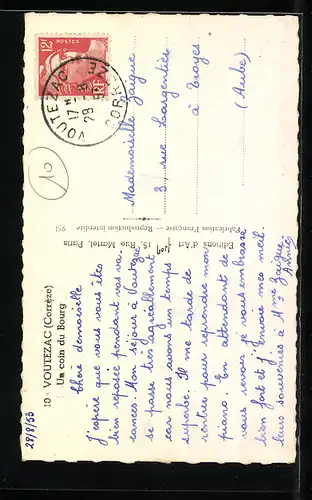 10 - VOUTEZAC (Corrèze)
Un coin du Bourg
28/8/53
Chère demoiselle
J'espère que vous vous êtes
bien reposée pendant vos va-
cances. Mon séjour à Voutezac
se passe très agréablement
car nous avons un temps
superbe. Il me tarde de
rentrer pour reprendre mon
piano. En attendant de
vous revoir je vous embrasse
bien fort et j'envoie mes meil-
leurs souvenirs à Mme Gaigue
Annie
Editions d'Art 15, Rue Martel, Paris
Fabrication Française - Reproduction interdite 951
POSTES
12F
RF
VOUTEZAC
17 H
28 - 8
CORRÈZE
Mademoiselle Gaigue
3, rue Largentier
à Troyes
(Aube)
10